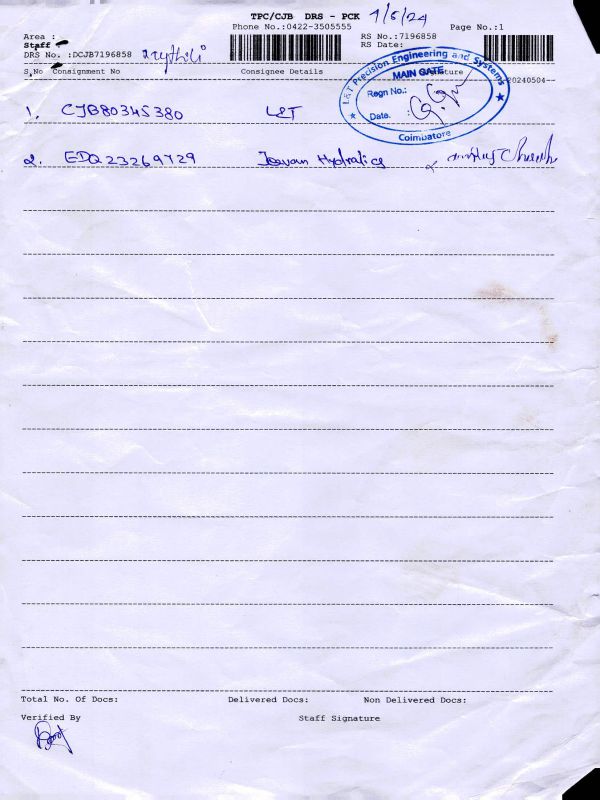 TPC/CJB DRS - PCK 7/5/24
Phone No.:0422-3505555 Page No.:1
Area : RS No.:7196858
Staff RS Date:
DRS No. :DCJB7196858
S.No Consignment No Consignee Details Signature
20240504
L&T Precision Engineering and Systems
MAIN GATE
Regn No.:
Date. :
Coimbatore
1. CJB80345380 L&T
2. EDQ23269729 Hydralics
Total No. Of Docs: Delivered Docs: Non Delivered Docs:
Verified By Staff Signature